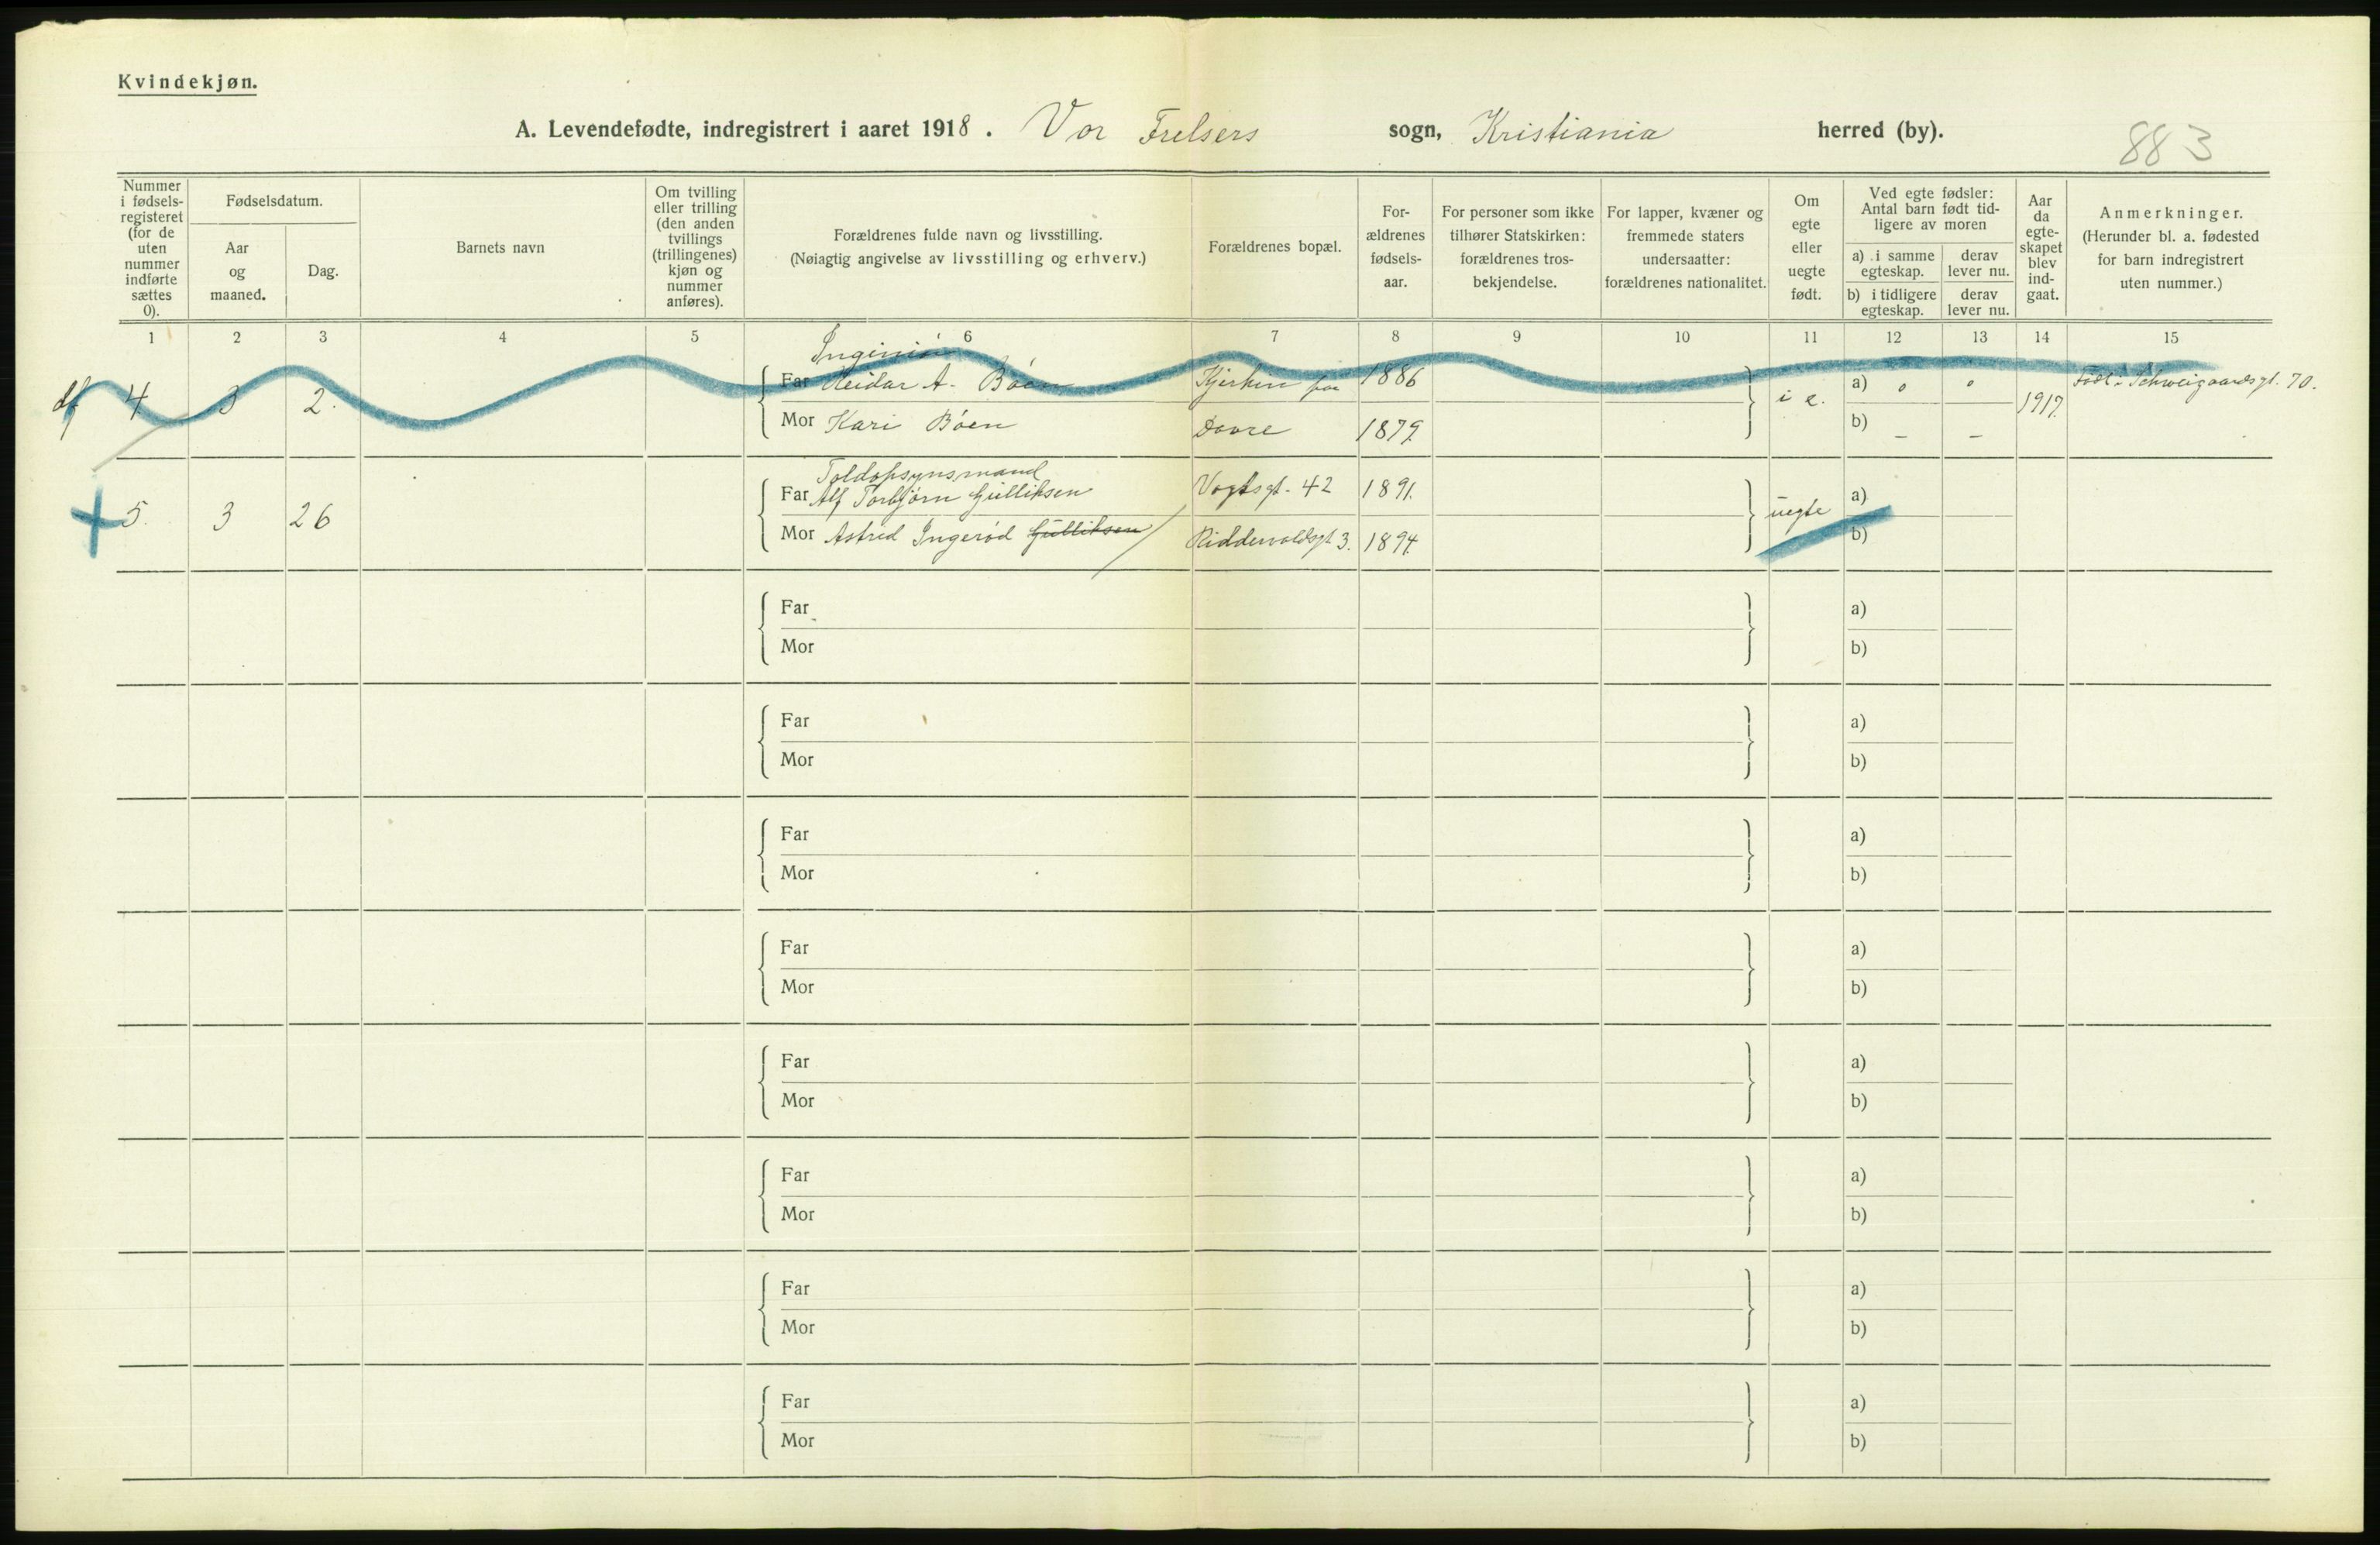 Kvindekjøn.
A. Levendefødte, indregistrert i aaret 1918. Vor Frelsers sogn, Kristiania herred (by).
883
Nummer i fødsels-registeret (for de uten nummer indførte sættes 0).
Fødselsdatum.
Aar og maaned.
Dag.
Barnets navn
Om tvilling eller trilling (den anden tvillings (trillingenes) kjøn og nummer anføres).
Forældrenes fulde navn og livsstilling.
(Nøiagtig angivelse av livsstilling og erhverv.)
Forældrenes bopæl.
For-ældrenes fødsels-aar.
For personer som ikke tilhører Statskirken: forældrenes tros-bekjendelse.
For lapper, kvæner og fremmede staters undersaatter: forældrenes nationalitet.
Om egte eller uegte født.
Ved egte fødsler: Antal barn født tid-ligere av moren
a) i samme egteskap.
derav lever nu.
b) i tidligere egteskap.
derav lever nu.
Aar da egte-skapet blev ind-gaat.
Anmerkninger.
(Herunder bl. a. fødested for barn indregistrert uten nummer.)
1 2 3 4 5 6 7 8 9 10 11 12 13 14 15
Ingeniør
df 4. 3 2. Far Reidar A. Böen Hjerkin paa 1886 i e. a) 0 0 1917. Född i Schweigaardsgt. 70.
Mor Kari Böen Dovre 1879 b) – –
Toldopsynsmand
5. 3 26 Far Alf Torbjörn Gulliksen Vogtsgt. 42 1891. uegte a)
Mor Astrid Ingeröd Gulliksen Riddervoldsgt 3. 1894. b)
Far a)
Mor b)
Far a)
Mor b)
Far a)
Mor b)
Far a)
Mor b)
Far a)
Mor b)
Far a)
Mor b)
Far a)
Mor b)
Far a)
Mor b)